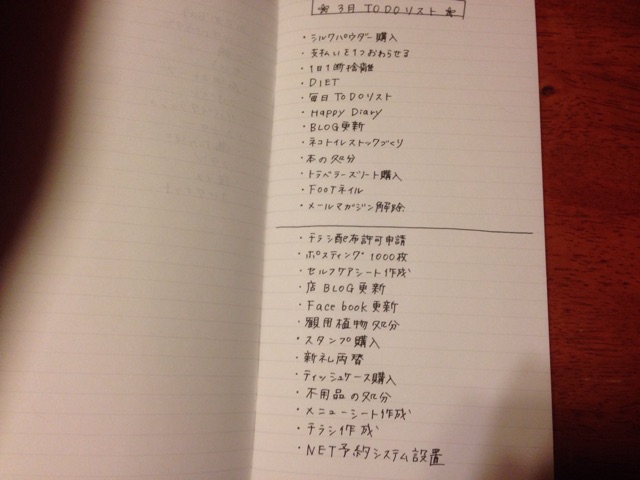 ❀ 3月 TODOリスト ❀
・シルクパウダー購入
・支払いを1つおわらせる
・1日1断捨離
・DIET
・毎日TODOリスト
・Happy Diary
・BLOG更新
・ネコトイレストックづくり
・本の処分
・トラベラーズノート購入
・FOOTネイル
・メールマガジン解除
・チラシ配布許可申請
・ポスティング1000枚
・セルフケアシート作成
・店BLOG更新
・Face book更新
・観用植物処分
・スタンプ購入
・新札両替
・ティッシュケース購入
・不用品の処分
・メニューシート作成
・チラシ作成
・NET予約システム設置